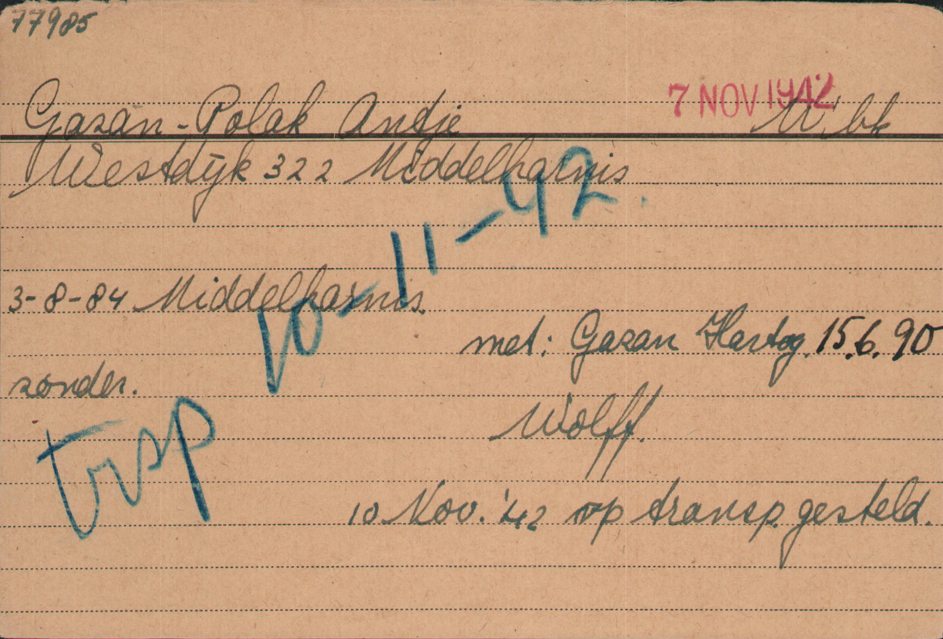 77985
7 NOV 1942
Gazan-Polak Antje W.bk
Westdijk 322 Middelharnis
3-8-84 Middelharnis.
met: Gazan Hartog. 15.6.90
zonder.
Wolff.
trsp 10-11-42.
10 Nov. '42 op transp. gesteld.